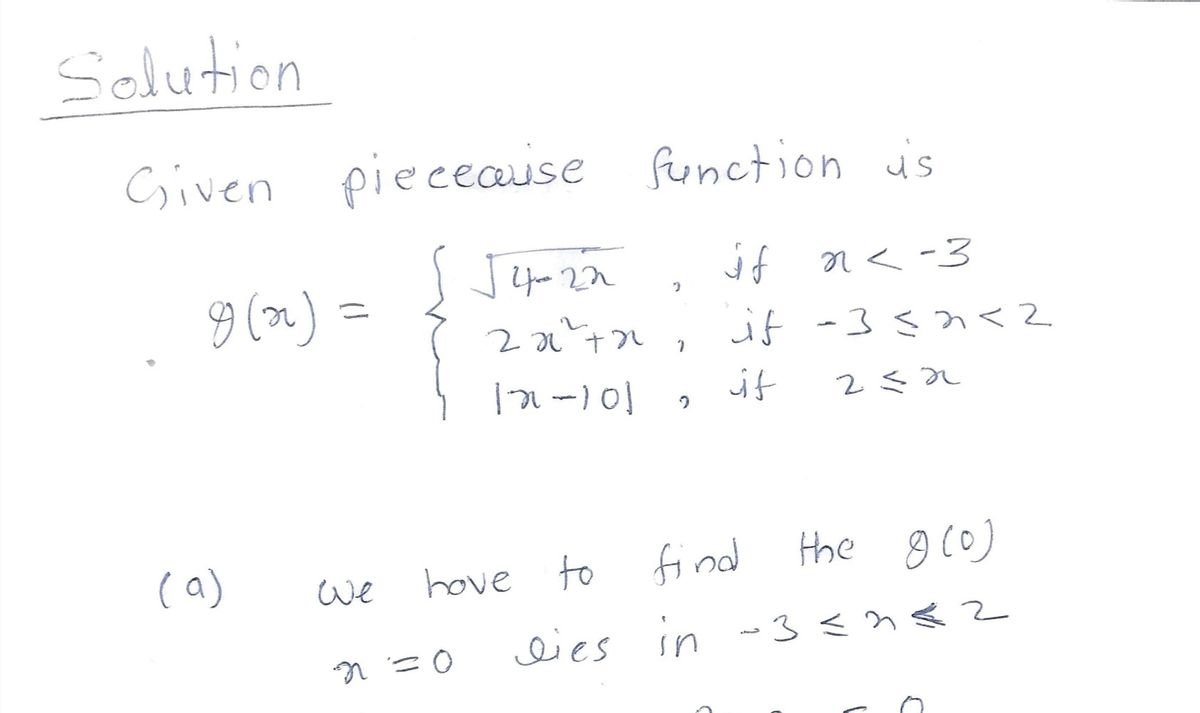 Solution
Given piecewise function is
g(x) = { √4-2x , if x < -3
2x²+x , if -3 ≤ x < 2
|x-10| , if 2 ≤ x
(a) We have to find the g(0)
x = 0 lies in -3 ≤ x < 2